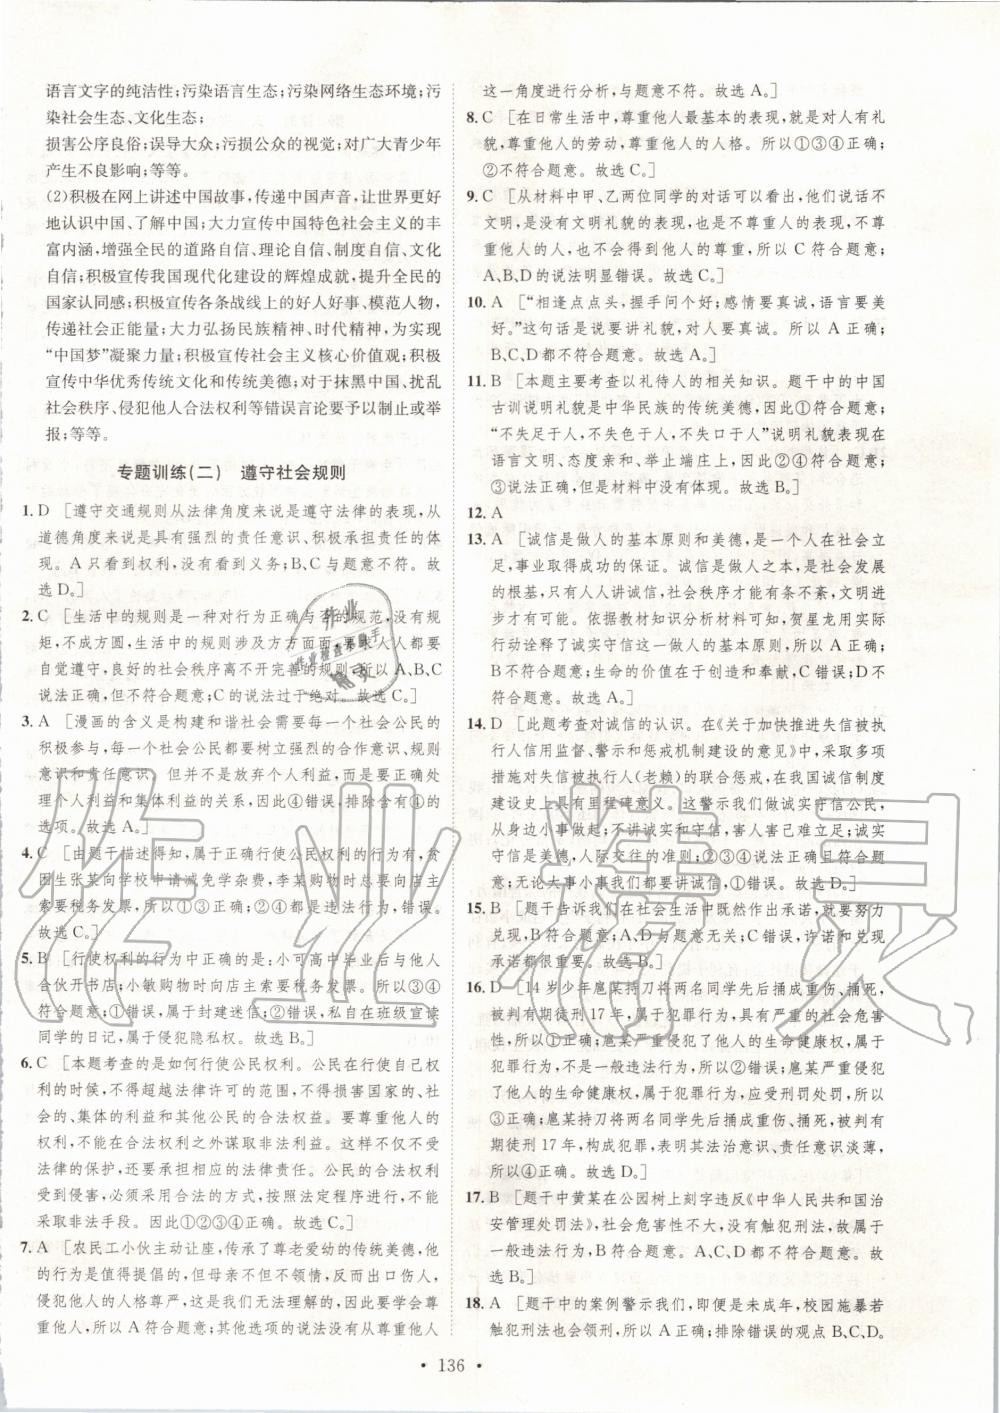 语言文字的纯洁性;污染语言生态;污染网络生态环境;污
染社会生态、文化生态;
损害公序良俗;误导大众;污损公众的视觉;对广大青少年
产生不良影响;等等。
(2)积极在网上讲述中国故事,传递中国声音,让世界更好
地认识中国、了解中国;大力宣传中国特色社会主义的丰
富内涵,增强全民的道路自信、理论自信、制度自信、文化
自信;积极宣传我国现代化建设的辉煌成就,提升全民的
国家认同感;积极宣传各条战线上的好人好事、模范人物,
传递社会正能量;大力弘扬民族精神、时代精神,为实现
“中国梦”凝聚力量;积极宣传社会主义核心价值观;积极
宣传中华优秀传统文化和传统美德;对于抹黑中国、扰乱
社会秩序、侵犯他人合法权利等错误言论要予以制止或举
报;等等。
专题训练(二) 遵守社会规则
1. D [遵守交通规则从法律角度来说是遵守法律的表现,从
道德角度来说是具有强烈的责任意识、积极承担责任的体
现。A 只看到权利、没有看到义务;B、C 不符合题意。故
选 D。]
2. C [生活中的规则是一种对行为正确与否的规范,没有规
矩,不成方圆,生活中的规则涉及方方面面,要求人人都要
自觉遵守,良好的社会秩序离不开完善的规则,所以 A、B、D
说法正确,但不符合题意;C 的说法过于绝对。故选 C。]
3. A [漫画的含义是构建和谐社会需要每一个社会公民的
积极参与,每一个社会公民都要树立强烈的合作意识、规则
意识和责任意识,但并不是放弃个人利益,而是要正确处
理个人利益和集体利益的关系,因此④错误,排除含有④的
选项。故选 A。]
4. C [由题干描述得知,属于正确行使公民权利的行为有,贫
困生张某向学校申请减免学杂费,李某购物时总要向店主
索要税务发票,所以①③正确;②④都是违法行为,错误。
故选 C。]
5. B [行使权利的行为中正确的是:小可高中毕业后与他人
合伙开书店;小敏购物时向店主索要税务发票。所以③④
符合题意;①错误,属于封建迷信;②错误,私自在班级宣读
同学的日记,属于侵犯隐私权。故选 B。]
6. C [本题考查的是如何行使公民权利。公民在行使自己权
利的时候,不得超越法律许可的范围,不得损害国家的、社
会的、集体的利益和其他公民的合法权益。要尊重他人的
权利,不能在合法权利之外谋取非法利益。这样不仅不受
法律的保护,还要承担相应的法律责任。公民的合法权利
受到侵害,必须采用合法的方式,按照法定程序,不能采用
非法手段。因此①②③④正确。故选 C。]
7. A [农民工小伙主动让座,传承了尊老爱幼的传统美德,他
的行为是值得提倡的,但老母亲不但不领情,反而出口伤人,
侵犯他人的人格尊严,这是我们无法理解的,因此我们要学会尊
重他人,所以 A 符合题意;其他选项的说法没有从尊重他人
这一角度进行分析,与题意不符。故选 A。]
8. C [在日常生活中,尊重他人最基本的表现,就是对人有礼
貌,尊重他人的劳动,尊重他人的人格。所以①③④正确;
②不符合题意。故选 C。]
9. C [从材料中甲、乙两位同学的对话可以看出,他们说话不
文明,是没有文明礼貌的表现,也是不尊重人的表现,不尊
重他人的人,也不会得到他人的尊重,所以 C 符合题意;
A、B、D 的说法明显错误。故选 C。]
10. A [“相逢点点头,握手问个好;感情要真诚,语言要美
好。”这句话是说要讲礼貌,对人要真诚。所以 A 正确;
B、C、D 都不符合题意。故选 A。]
11. B [本题主要考查以礼待人的相关知识。题干中的中国
古训说明礼貌是中华民族的传统美德,因此①符合题意;
“不失足于人,不失色于人,不失口于人”说明礼貌体现在
语言文明、态度亲和、举止端庄上,因此②④符合题意。
③说法正确,但是材料中没有体现。故选 B。]
12. A
13. A [诚信是做人的基本原则和美德,是一个人在社会立
足,事业取得成功的保证。诚信是做人之本,是社会发展
的根基,只有人人讲诚信,社会秩序才能有条不紊,文明进
步才有希望。依据教材知识分析材料可知,贺星龙用实际
行动诠释了诚实守信这一做人的基本原则,所以 A 正确;
B 不符合题意;生命的价值在于创造和奉献,C 错误;D 不
符合题意。故选 A。]
14. D [此题考查对诚信的认识。在《关于加快推进失信被执
行人信用监督、警示和惩戒机制建设的意见》中,采取多项
措施对失信被执行人(老赖)的联合惩戒,在我国诚信制度
建设史上具有里程碑意义。这警示我们做诚实守信公民,
从身边小事做起;不讲诚实和守信,害人害己难立足;诚实
守信是美德,人际交往的准则;②③④说法正确且符合题
意;无论大事小事我们都要讲诚信,①错误。故选 D。]
15. B [题干告诉我们在社会生活中既然作出承诺,就要努力
兑现,B 符合题意;A、D 与题意无关;C 错误,许诺和兑现
承诺都很重要。故选 B。]
16. D [14 岁少年扈某持刀将两名同学先后捅成重伤、捅死,
被判有期徒刑 17 年,属于犯罪行为,具有严重的社会危害
性,所以①正确;扈某严重侵犯了他人的生命健康权,属于
犯罪行为,不属于一般违法行为,所以②错误;扈某侵犯
了他人的生命健康权,属于犯罪行为,应受到刑罚处罚,所
以③正确;扈某持刀将两名同学先后捅成重伤、捅死,被判有
期徒刑 17 年,构成犯罪,表明其法治意识、责任意识淡薄,
所以④正确。故选 D。]
17. B [题干中黄某在公园树上刻字违反《中华人民共和国治
安管理处罚法》,社会危害性不大,没有触犯刑法,故属于
一般违法行为,B 符合题意。A、C、D 都不符合题意。故
选 B。]
18. A [题干中的案例警示我们,即便是未成年,校园施暴若
触犯刑法也会领刑,所以 A 正确;排除错误的观点 B、C、D。
• 136 •